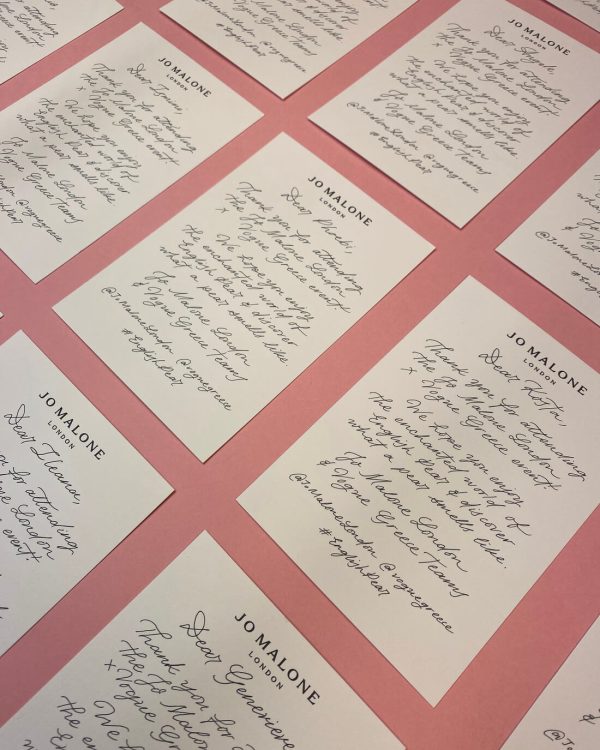 JO MALONE
LONDON
Dear
Thank you for attending
the Jo Malone London
x Vogue Greece event!
We hope you enjoy
the enchanted world of
English Pear & discover
what a pear smells like
Jo Malone London
& Vogue Greece Teams
@JoMaloneLondon @voguegreece
#EnglishPear
JO MALONE
LONDON
Dear
Thank you for attending
the Jo Malone London
x Vogue Greece event
We hope you enjoy
the enchanted world of
English Pear & discover
what a pear smells like
Jo Malone London
& Vogue Greece Teams
@JoMaloneLondon @voguegreece
#EnglishPear
JO MALONE
LONDON
Dear
Thank you for attending
the Jo Malone London
x Vogue Greece event!
We hope you enjoy
the enchanted world of
English Pear & discover
what a pear smells like.
Jo Malone London
& Vogue Greece Teams
@JoMaloneLondon @voguegreece
#EnglishPear
JO MALONE
LONDON
Dear Kosta,
Thank you for attending
the Jo Malone London
x Vogue Greece event.
We hope you enjoy
the enchanted world of
English Pear & discover
what a pear smells like.
Jo Malone London
& Vogue Greece Teams
@JoMaloneLondon @voguegreece
#EnglishPear
JO MALONE
LONDON
Dear Iliana,
for attending
London
event!
JO MALONE
LONDON
Dear Genevieve
Thank you for
the Jo Malon
x Vogue Greec
We ho
the en